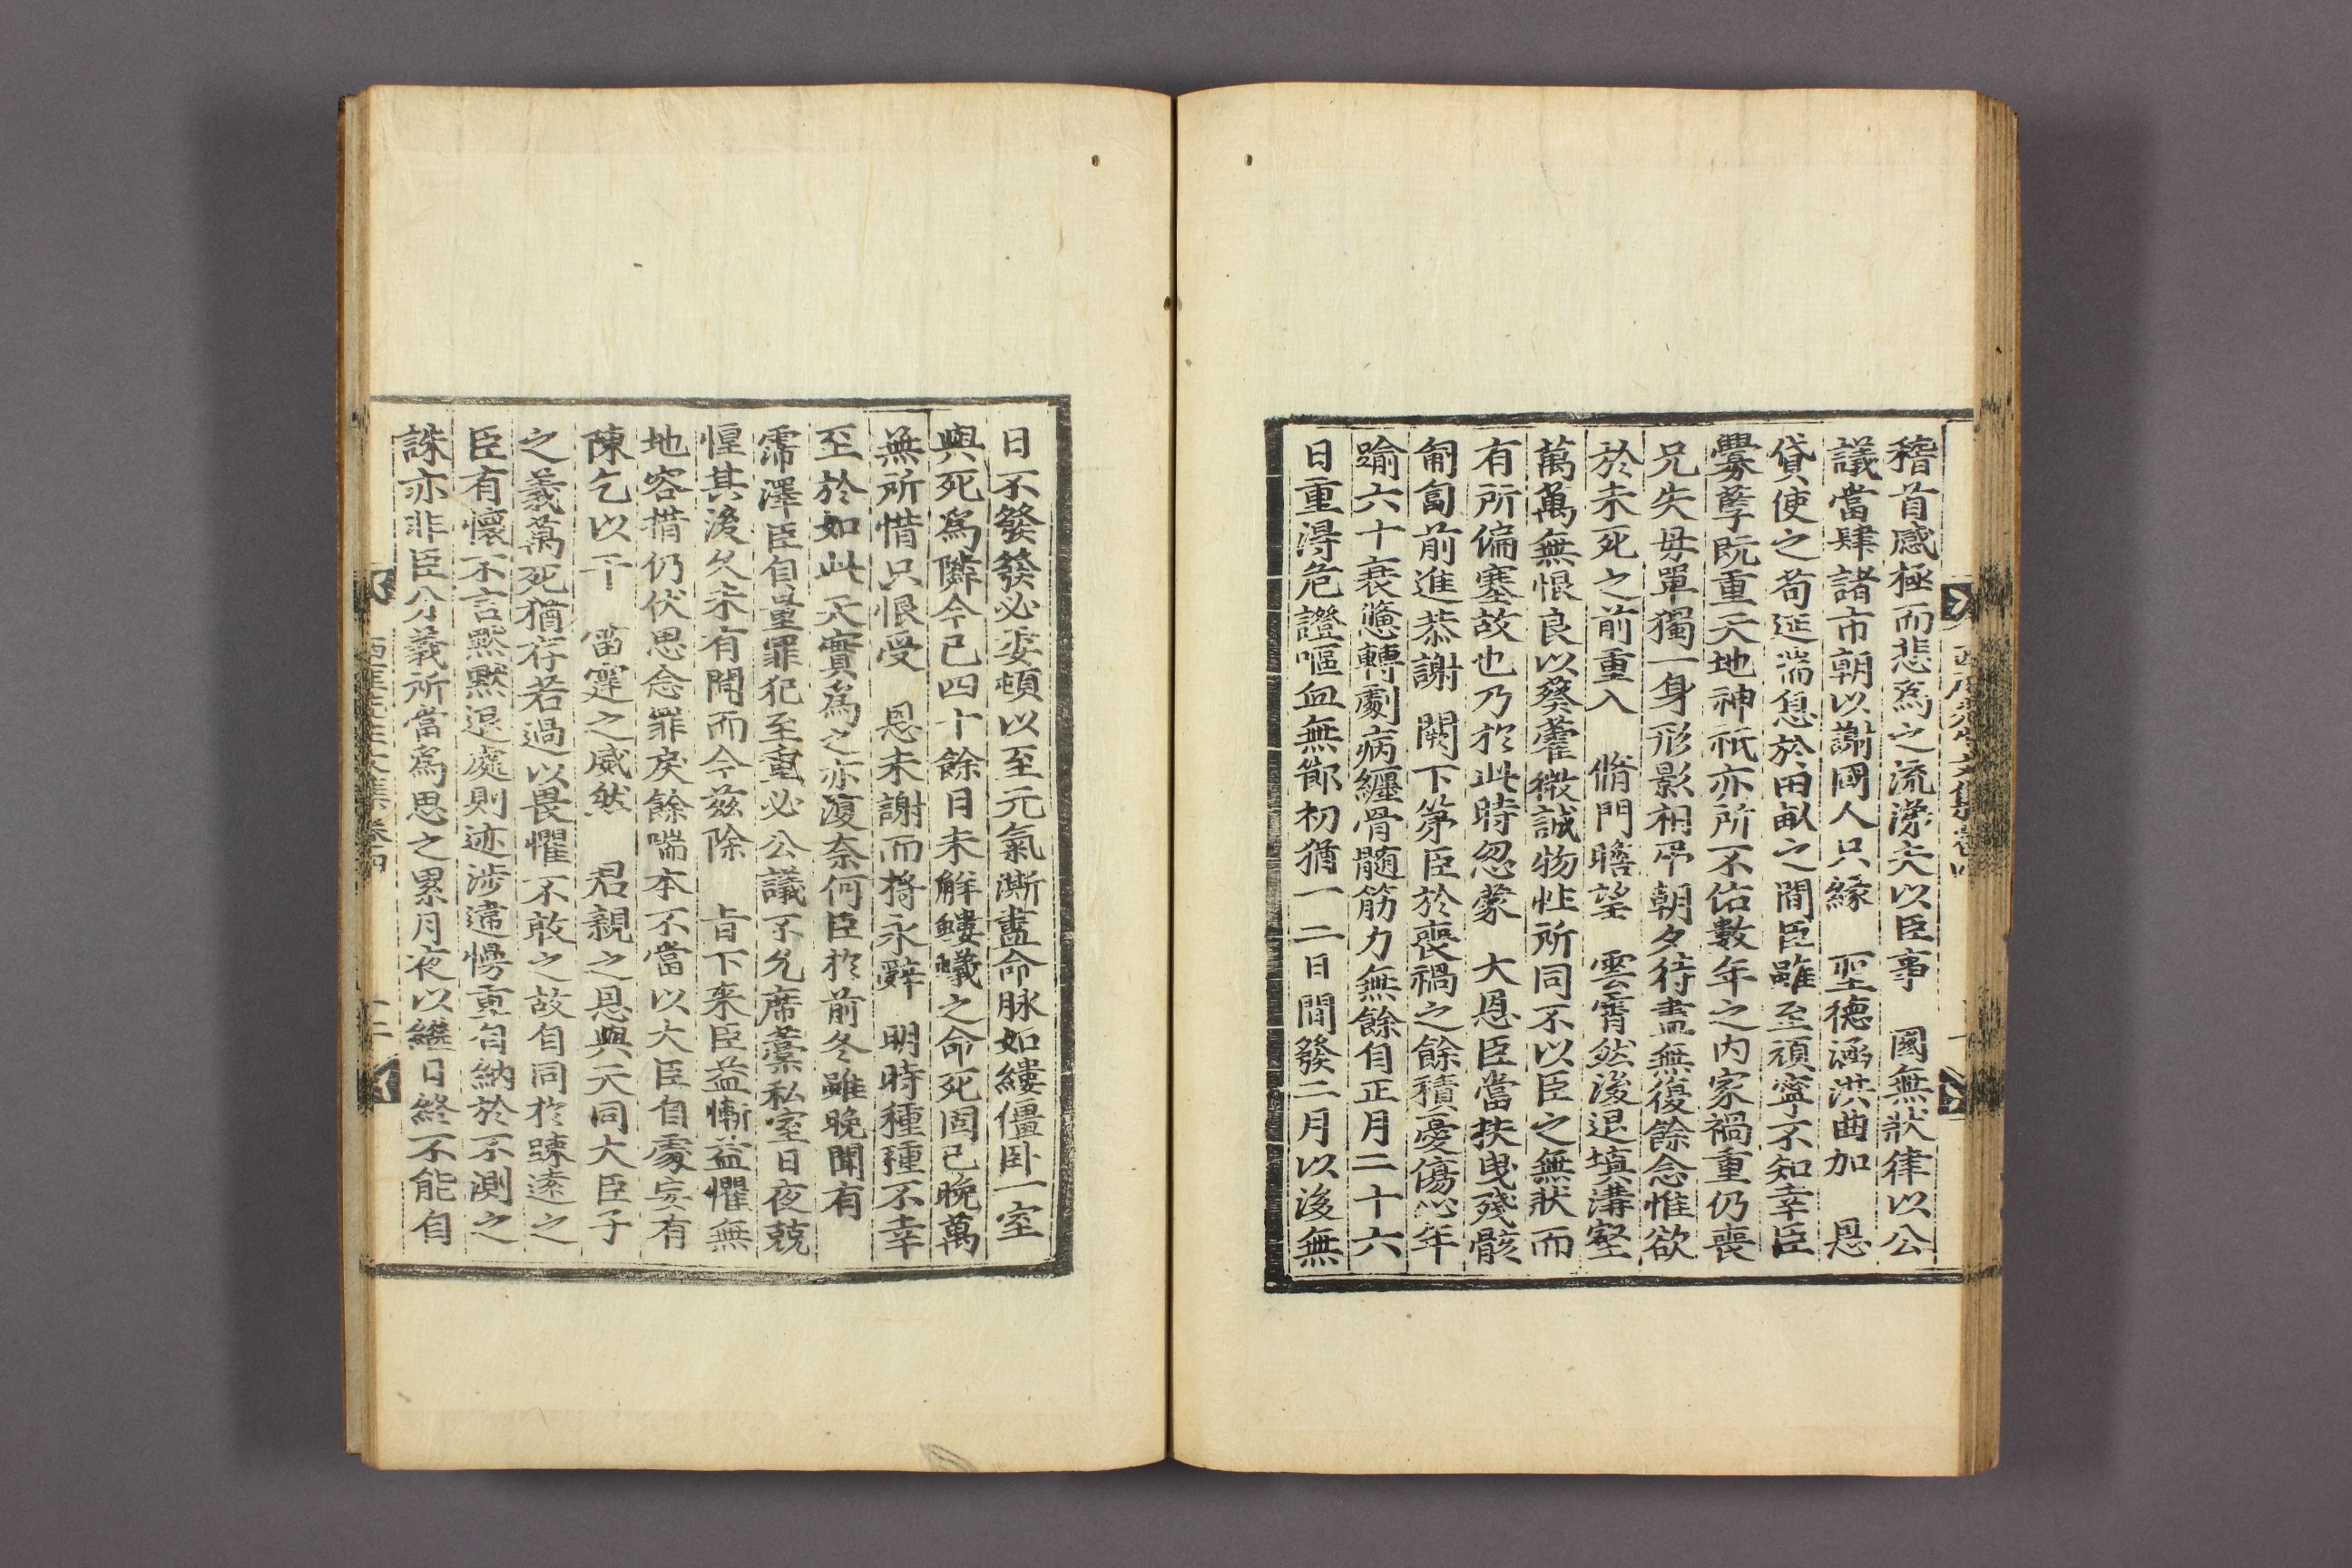 稽首感極而悲爲之流涕夫以臣事 國無狀律以公
議當肆諸市朝以謝國人只緣 聖德涵洪曲加 恩
貸使之苟延喘息於田畝之間臣雖至頑寧不知幸臣
釁孼旣重天地神祇亦所不佑數年之內家禍重仍喪
兄失母單獨一身形影相吊朝夕待盡無復餘念惟欲
於未死之前重入 脩門瞻望 雲霄然後退塡溝壑
萬萬無恨良以葵藿微誠物性所同不以臣之無狀而
有所偏塞故也乃於此時忽蒙 大恩臣當扶曳殘骸
匍匐前進恭謝 闕下第臣於喪禍之餘積憂傷心年
踰六十衰憊轉劇病纏骨髓筋力無餘自正月二十六
日重得危證嘔血無節初猶一二日間發二月以後無
日不發發必委頓以至元氣澌盡命脉如縷僵臥一室
與死爲隣今已四十餘日未解螻蟻之命死固已晚萬
無所惜只恨受 恩未謝而將永辭 明時種種不幸
至於如此天實爲之亦復奈何臣於前冬雖晚聞有
霈澤臣自量罪犯至重必公議不允席藁私室日夜兢
惶其後久未有聞而今玆除 旨下來臣益慚益懼無
地容措仍伏思念罪戾餘喘本不當以大臣自處妄有
陳乞以干 雷霆之威然 君親之恩與天同大臣子
之義萬死猶存若過以畏懼不敢之故自同於踈遠之
臣有懷不言默默退處則迹涉違慢重自納於不測之
誅亦非臣分義所當爲思之累月夜以繼日終不能自
西厓先生文集 卷四 十二